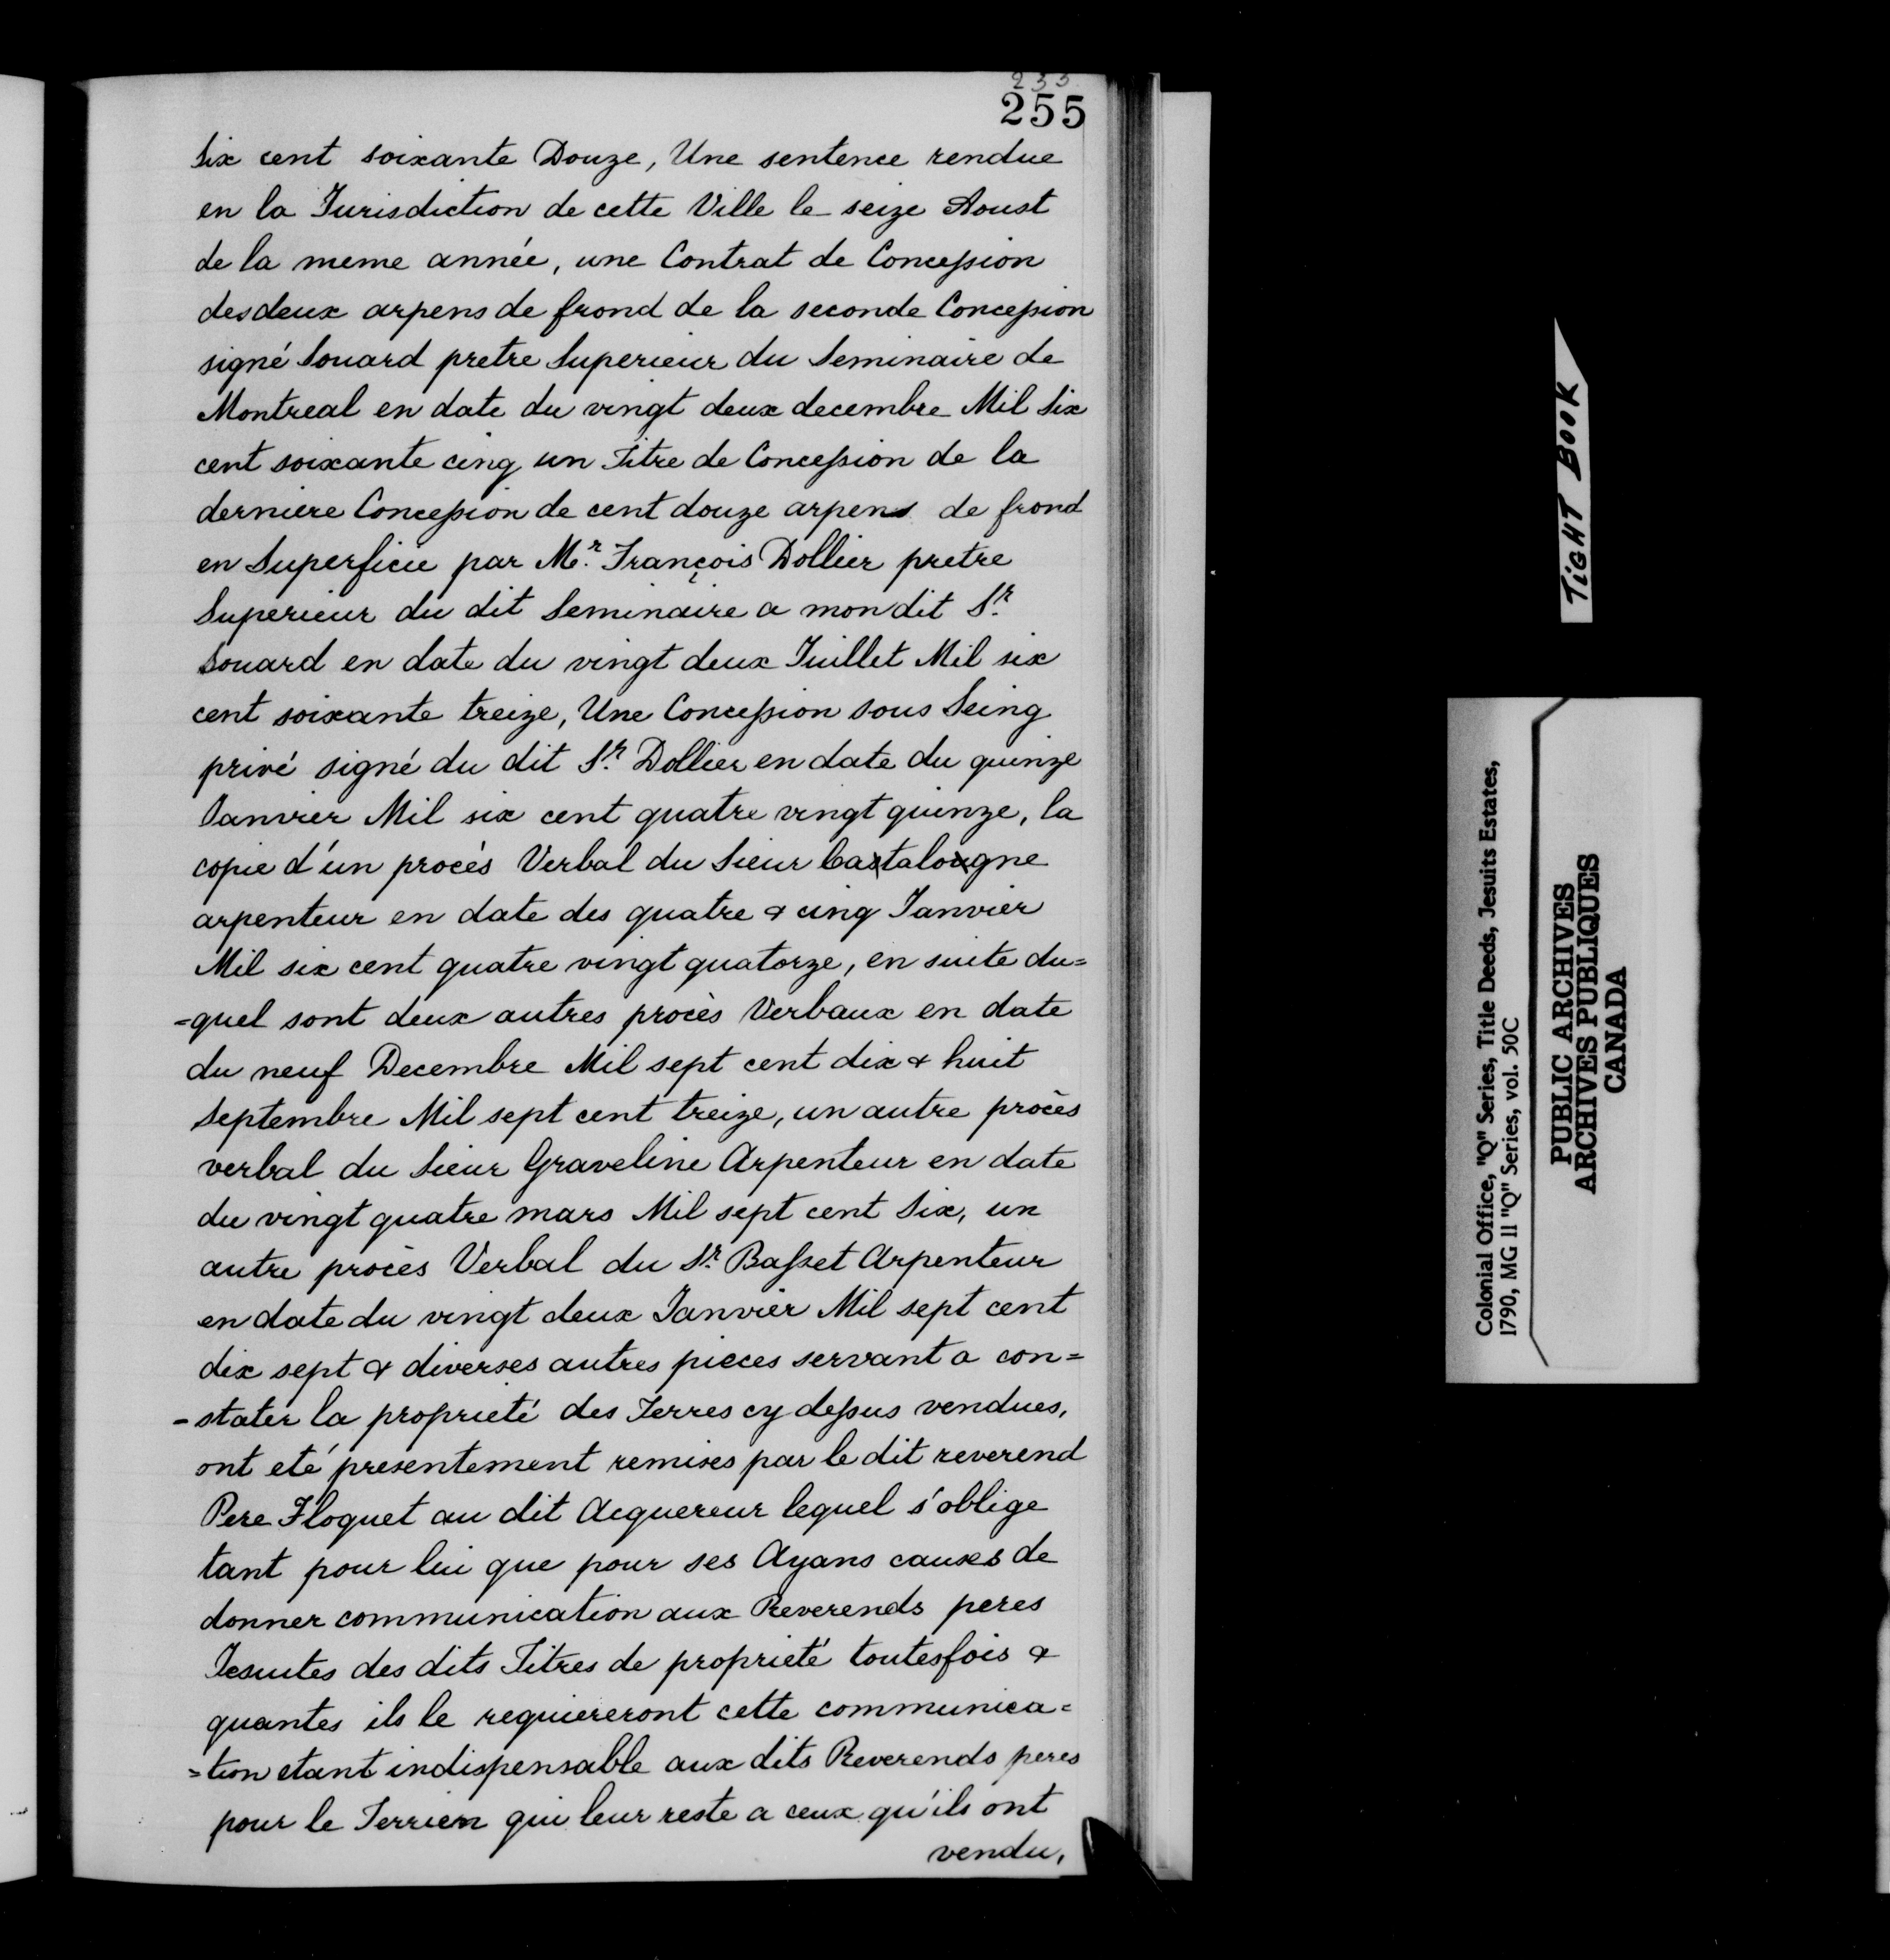 233
255
Six cent soixante Douze, Une sentence rendue
en la Jurisdiction de cette Ville le seize Aoust
de la meme année, une Contrat de Concession
des deux arpens de frond de la seconde Concession
signé Souard pretre Superieur du Seminaire de
Montreal en date du vingt deux decembre Mil Six
cent soixante cinq un Titre de Concession de la
derniere Concession de cent douze arpens de frond
en Superficie par Mr. François Dollier pretre
Superieur du dit Seminaire a mon dit Sr.
Souard en date du vingt deux Juillet Mil six
cent soixante treize, Une Concession sous Seing
privé signé du dit Sr. Dollier en date du quinze
Janvier Mil six cent quatre vingt quinze, la
copie d'un procès Verbal du Sieur Castalougne
arpenteur en date des quatre & cinq Janvier
Mil six cent quatre vingt quatorze, en suite du=
=quel sont deux autres procès Verbaux en date
du neuf Decembre Mil sept cent dix & huit
Septembre Mil sept cent treize, un autre procès
verbal du Sieur Graveline Arpenteur en date
du vingt quatre mars Mil sept cent Six, un
autre procès Verbal du Sr. Basset Arpenteur
en date du vingt deux Janvier Mil sept cent
dix sept & diverses autres pieces servant a con=
-stater la proprieté des Terres cy dessus vendues,
ont eté presentement remises par le dit reverend
Pere Floquet au dit Acquereur lequel s'oblige
tant pour lui que pour ses Ayans causes de
donner communication aux Reverends peres
Jesuites des dits Titres de proprieté toutesfois &
quantes ils le requiereront cette communica=
=tion etant indispensable aux dits Reverends peres
pour le Terrien qui leur reste a ceux qu'ils ont
vendu,
TIGHT BOOK
Colonial Office, "Q" Series, Title Deeds, Jesuits Estates,
1790, MG 11 "Q" Series, vol. 50C
PUBLIC ARCHIVES
ARCHIVES PUBLIQUES
CANADA